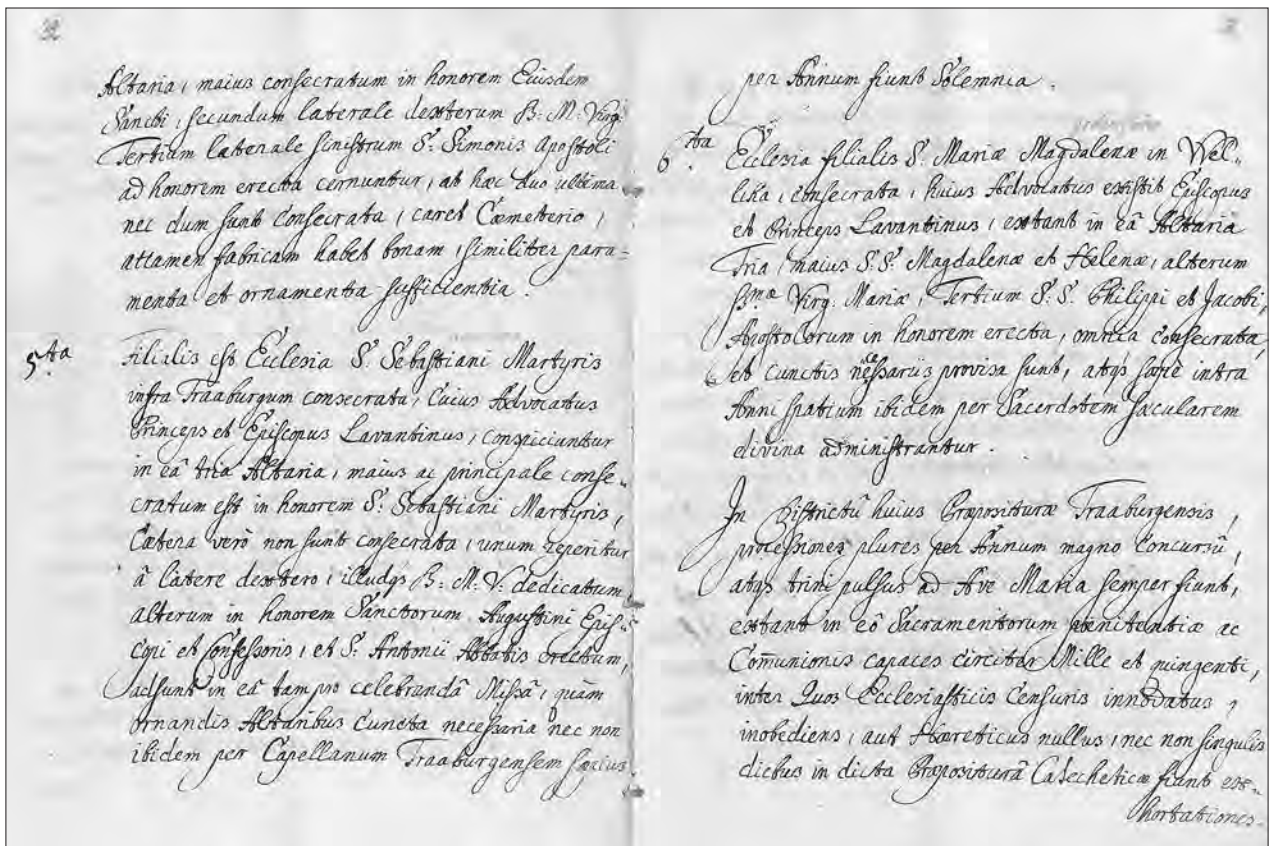 32
Altaria, maius consecratum in honorem Eiusdem
Sancti, secundum laterale dexterum B: M: Virg:
Tertium laterale sinistrum S: Simonis Apostoli
ad honorem erecta cernuntur, at hæc duo ultima
nec dum sunt consecrata, caret Cæmeterio,
attamen fabricam habet bonam, similiter para=
menta et ornamenta sufficientia.
5.ta Filialis est Ecclesia S: Sebastiani Martyris
infra Traaburgum consecrata, Cuius Advocatus
Princeps et Episcopus Lavantinus, conspiciuntur
in eâ tria Altaria, maius ac principale conse=
cratum est in honorem S: Sebastiani Martyris,
Cætera verò non sunt consecrata, unum reperitur
â latere dextero, illudqs B: M: V: dedicatum,
alterum in honorem Sanctorum Augustini Epis=
copi et Confessoris, et S: Antonii Abbatis erectum,
adsunt in eâ tam pro celebrandâ Missâ, quàm
ornandis Altaribus cuncta necessaria nec non
ibidem per Capellanum Traaburgensem sæpius
per Annum fiunt Solemnia.
6.ta Ecclesia filialis S: Mariæ Magdalenæ in Wel=
lika, consecrata, huius Advocatus existit Episcopus
et Princeps Lavantinus, extant in eâ Altaria
Tria, maius S: S: Magdalenæ et Helenæ, alterum
B:mæ Virg: Mariæ, Tertium S: S: Philippi et Jacobi,
Apostolorum in honorem erecta, omnia consecrata,
et cunctis nec͞ssariis provisa sunt, atqs sæpe intra
Anni spatium ibidem per Sacerdotem sæcularem
divina administrantur.
In Districtû huius Præposituræ Traaburgensis,
processiones plures per Annum magno Concursû,
atqs trini pulsus ad Ave Maria semper fiunt,
extant in eô Sacramentorum pænitentiæ ac
Com̄unionis capaces circiter Mille et quingenti,
inter Quos Ecclesiasticis Censuris innodatus,
inobediens, aut Hæreticus nullus, nec non singulis
diebus in dicta Præpositurâ Catecheticæ fiunt ex=
hortationes.